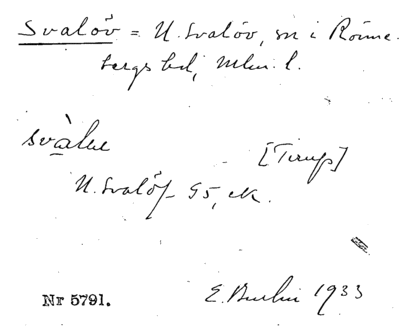 Svalöv = N. Svalöv, sn i Rönne-
bergs hd, Mlm. l.
svàlǝv [Tirup]
N. Svalöf G5, ek.
Nr 5791.
E. 1933